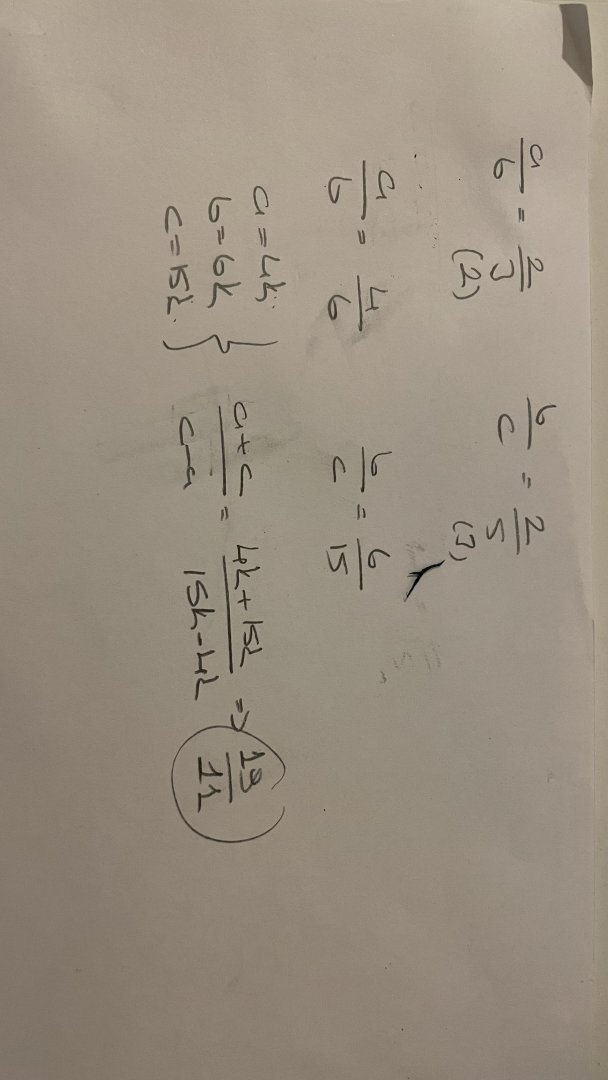 a/b = 2/3 b/c = 2/5
(2) (3)
a/b = 4/6 b/c = 6/15
a = 4k
b = 6k
c = 15k } a+c/c-a = 4k+15k/15k-4k => 19/11